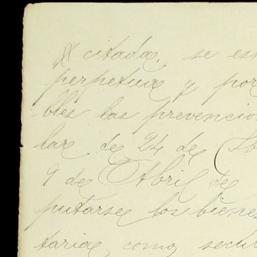 citada, se es
perpetua y por
bles las prevencio
lar de 24 de
9 de Abril de
putarse los bienes
taria, como